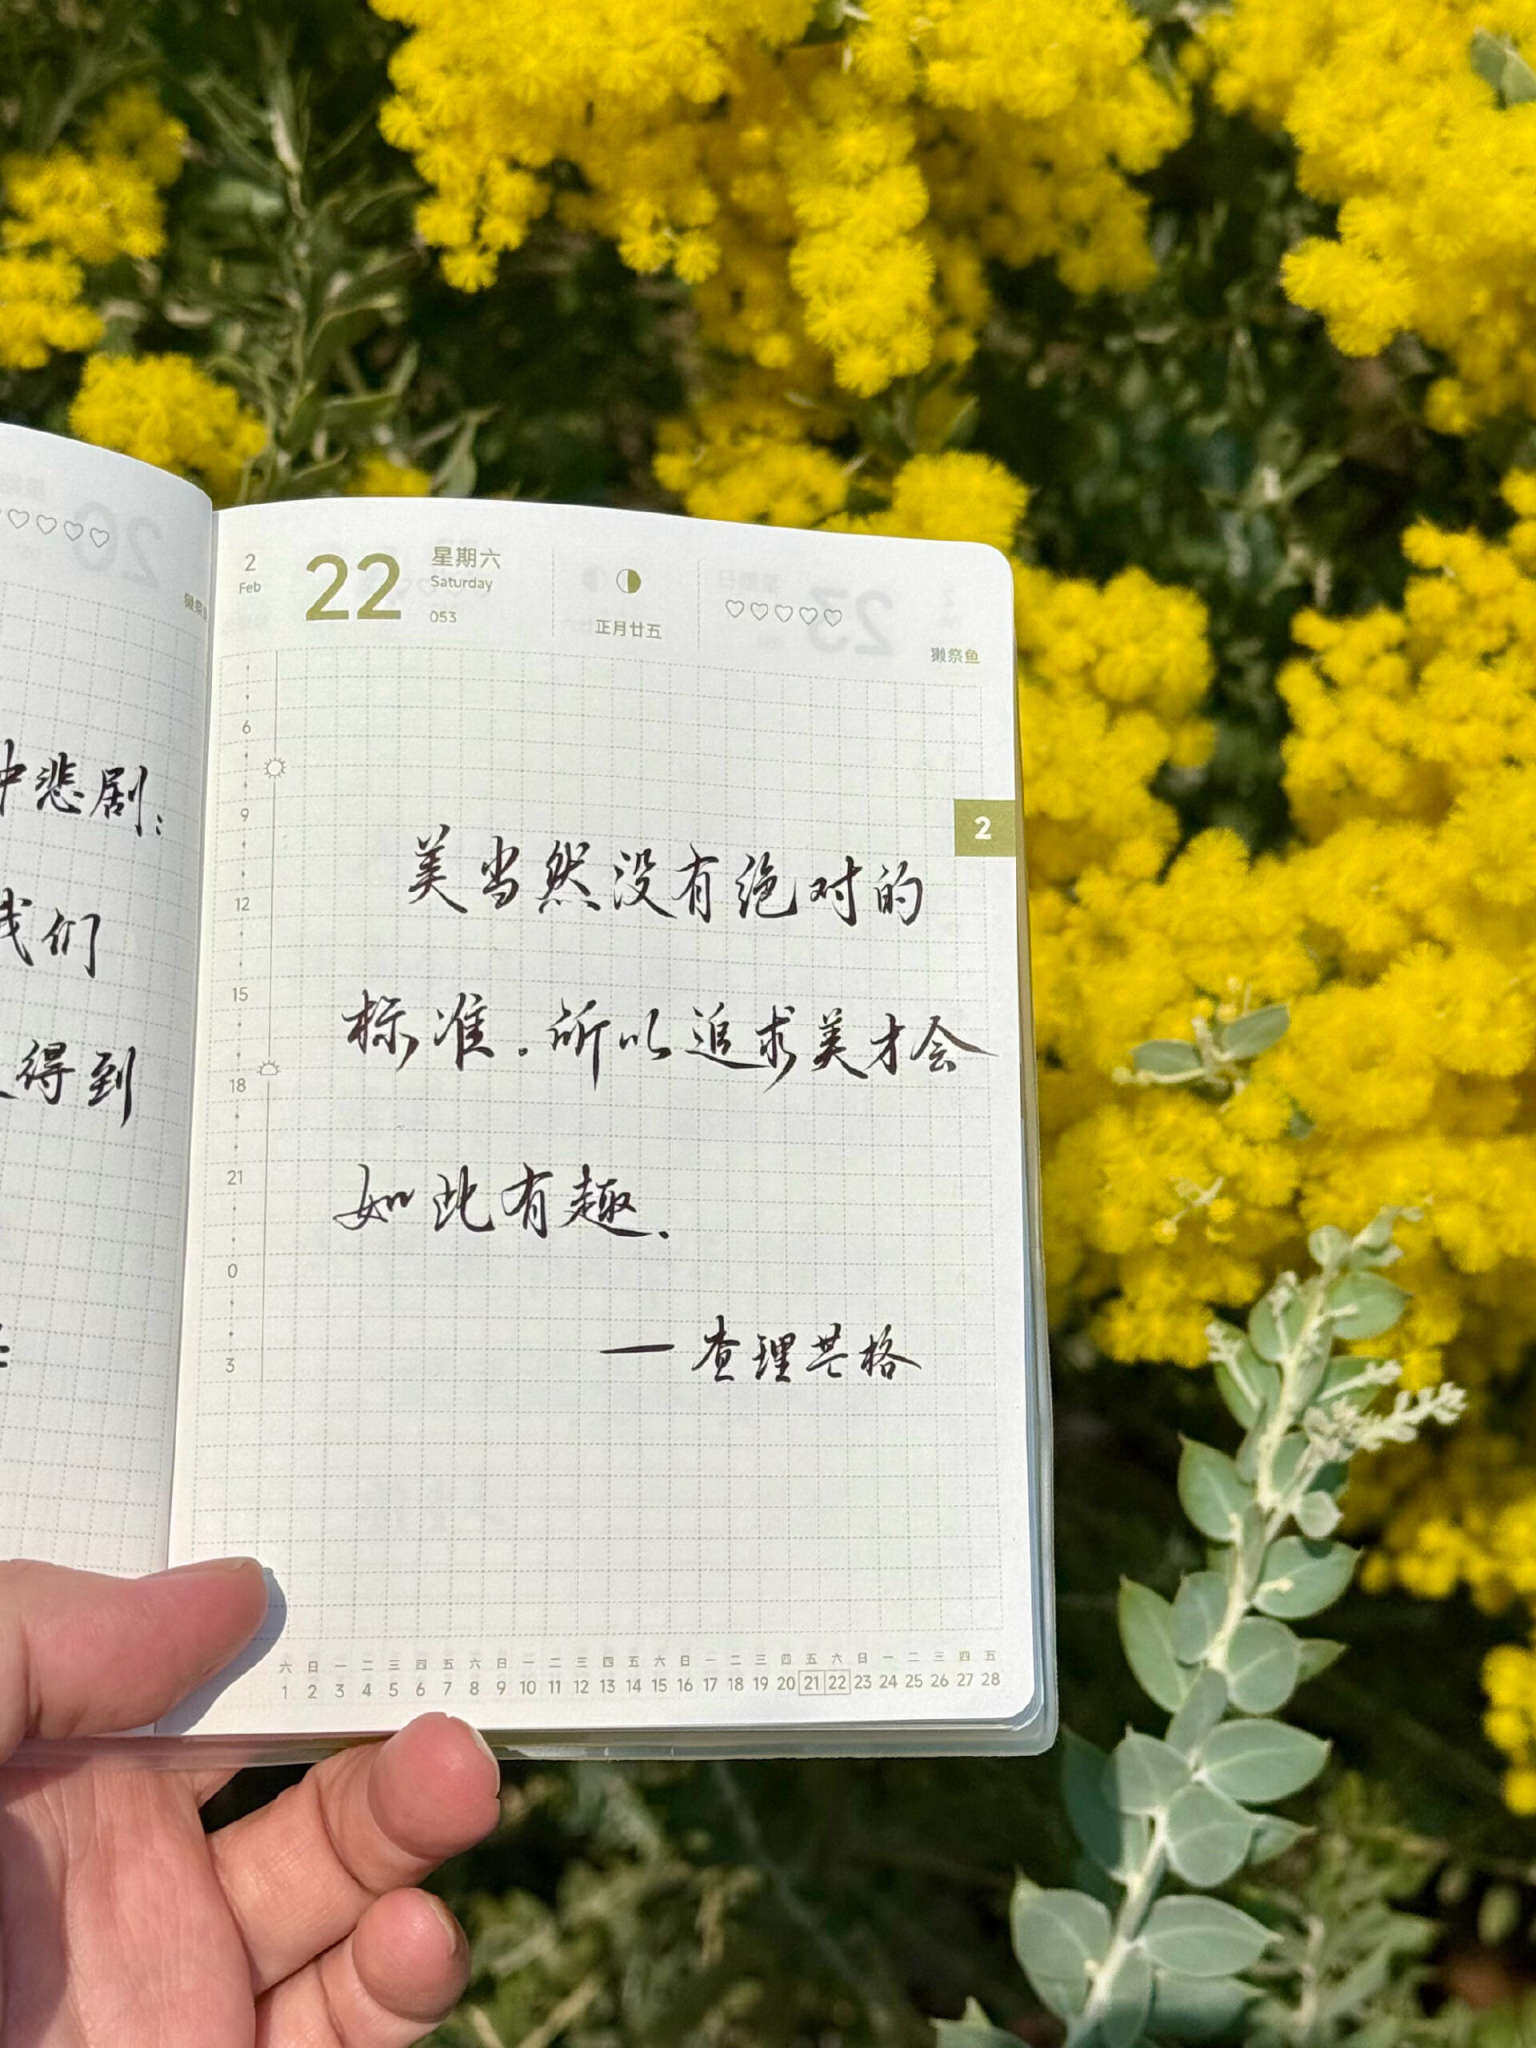 中悲剧：
我们
得到
2
Feb
22
星期六
Saturday
053
正月廿五
獭祭鱼
6
9
12
15
18
21
0
3
2
美当然没有绝对的
标准．所以追求美才会
如此有趣．
—查理芒格
六 日 一 二 三 四 五 六 日 一 二 三 四 五 六 日 一 二 三 四 五 六 日 一 二 三 四 五
1 2 3 4 5 6 7 8 9 10 11 12 13 14 15 16 17 18 19 20 21 22 23 24 25 26 27 28